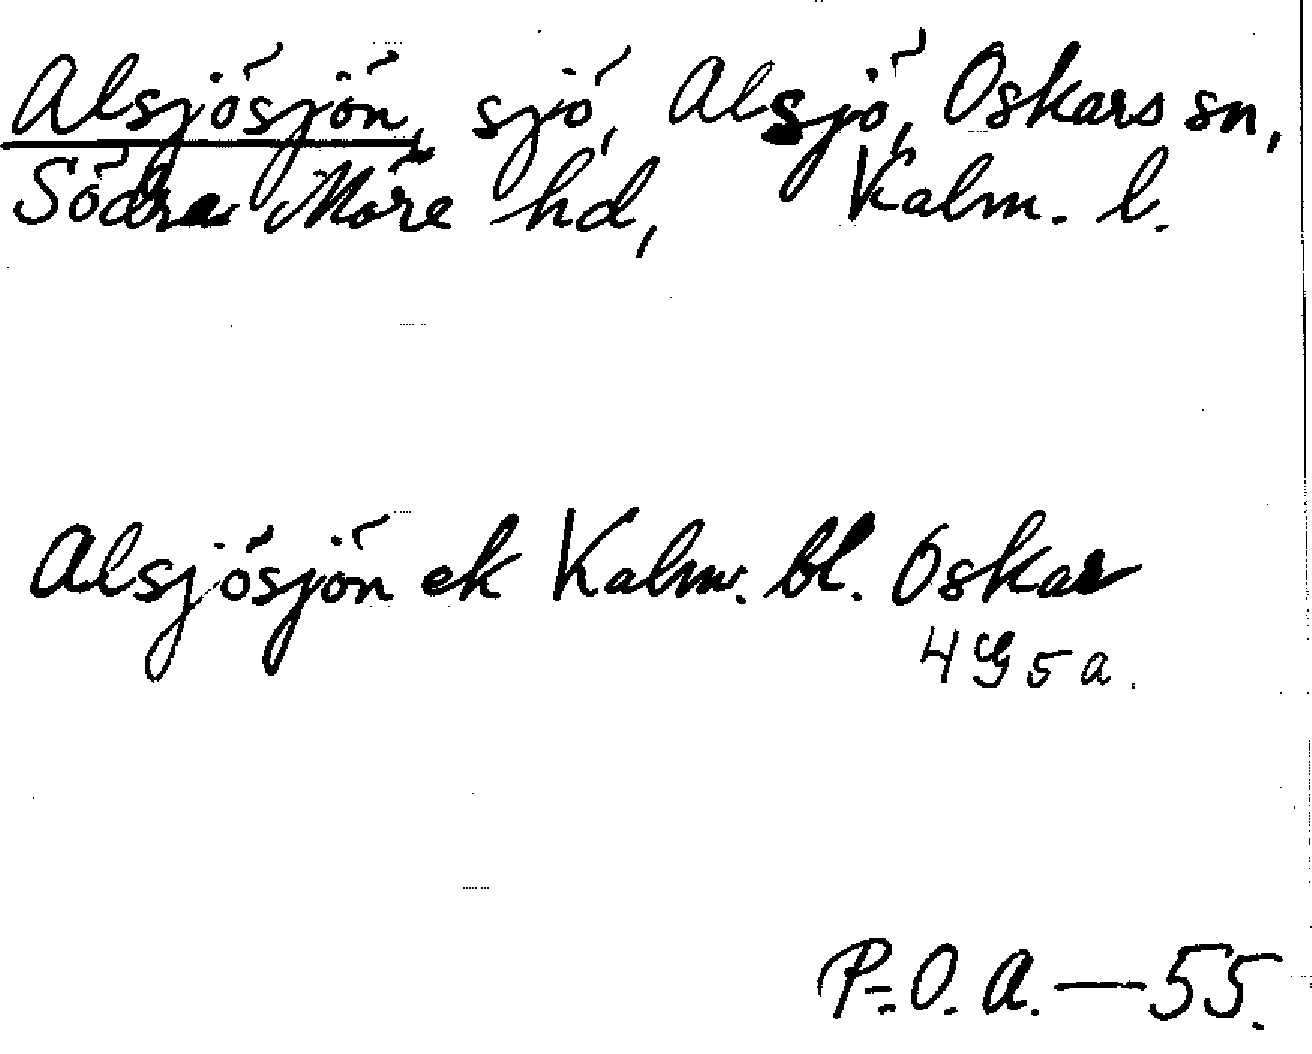 Alsjösjön, sjö, Alsjö, Oskars sn,
Södra Möre hd, Kalm. l.
Alsjösjön ek Kalm. bl. Oskar
4G5a.
P.-O. A. — 55.